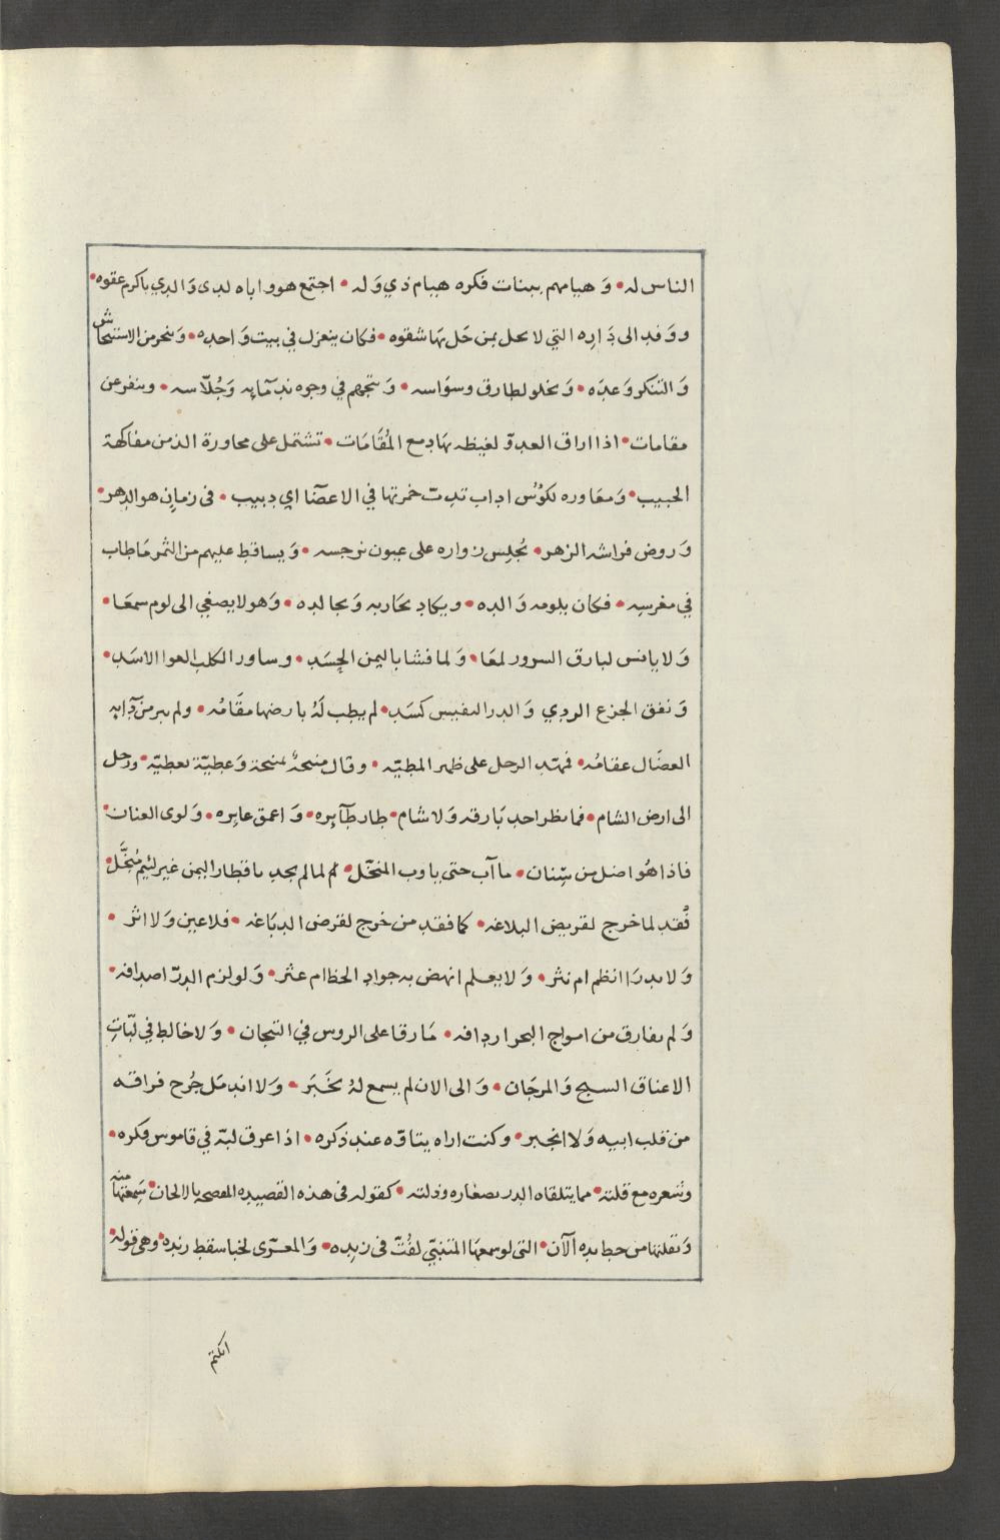 الناس له • وَهيامهم ببنات فكره هيام ذي وَله • اجتمع هو واباه لدى وَالدي باكرم عقوه •
ووَفد الى دَاره التي لا يحل بمن حَل بهَا شقوه • فكان ينعزل في بيت وَاحده • وَينحر من الاستيحاش
وَالتنكر وَعده • وَيخلو لطارق وسوَاسه • وَيتجهم في وجوه ندمَآيه وَجُلّاسه • وينفر عن
مقامات • اذا اراق العدوّ لغيظه بهَا دمع المُقامَات • تشتمل على محاورة الذ من مفاكهة
الحبيب • وَمعَاوره لكؤُس اداب تدبّ خمرتها في الاعضَا اي دبيب • في زمانٍ هو الدهر •
وَروض فراشه الزهر • يُجلِس زواره على عيون نرجسه • وَيساقط عليهم من الثمر مَا طاب
في مغرسِه • فكان يلومه وَالده • ويكاد يحَاربه وَيجالده • وَهو لا يصغي الى لوم سمعَا •
وَلا يانس لبارق السرور لمعَا • وَلما فشا باليمن الحِسَد • وساور الكلب العوا الاسَد •
وَنفق الجزع الردي وَالدر النفيس كسَد • لم يطب لَهُ بارضها مقَامُه • ولم يبر من دَآيه
العضَال عقامُه • فهتّد الرحل على ظهر المطيّه • وقال منيحةٌ بمنيحة وَعطيّة بعطيّه • ورحل
الى ارض الشام • فما نظر احد بَارقه وَلا شام • طار طَآيره • وَاعمق عايره • وَلوى العنان •
فاذا هُو اضل من سِنان • ما آب حتى ياوب المنخّل • لم لما لم يجد باقطار اليمن غير لئيم مُبَخَّل •
فُقد لما خرج لقريض البلاغه • كما فقد من خرج لقرض الدبَاغه • فلا عين وَلا اثر •
وَلا يدرَا انظم ام نثر • وَلا يعلم انهض به جواد الحظ ام عثر • وَلو لزم الدرّ اصدافه •
وَلم يفارق من امواج البحر اردافه • مَا رقا على الروس في التيجان • وَلا خالط في لبّاتِ
الاعناق السبح وَالمرجَان • وَالى الان لم يسمع لهُ بخَبَر • وَلا اندمَل جُرح فراقه
من قلب ابيه وَلا انجبر • وكنت اراه يتاوّه عند ذكره • اذا عرق لبّه في قاموس فكره •
وشعره مع قلته • مما يتلقاه الدر بصغاره وذلته • كقوله في هذه القصيده المفصحه بالالحان • سَمِعتهَا منه
وَنقلتها من خط يده الآن • التي لو سمعهَا المتنبّي لفُتّ في زنِده • وَالمعرّى لخبا سقط زنده • وهي قوله •
اتكتم